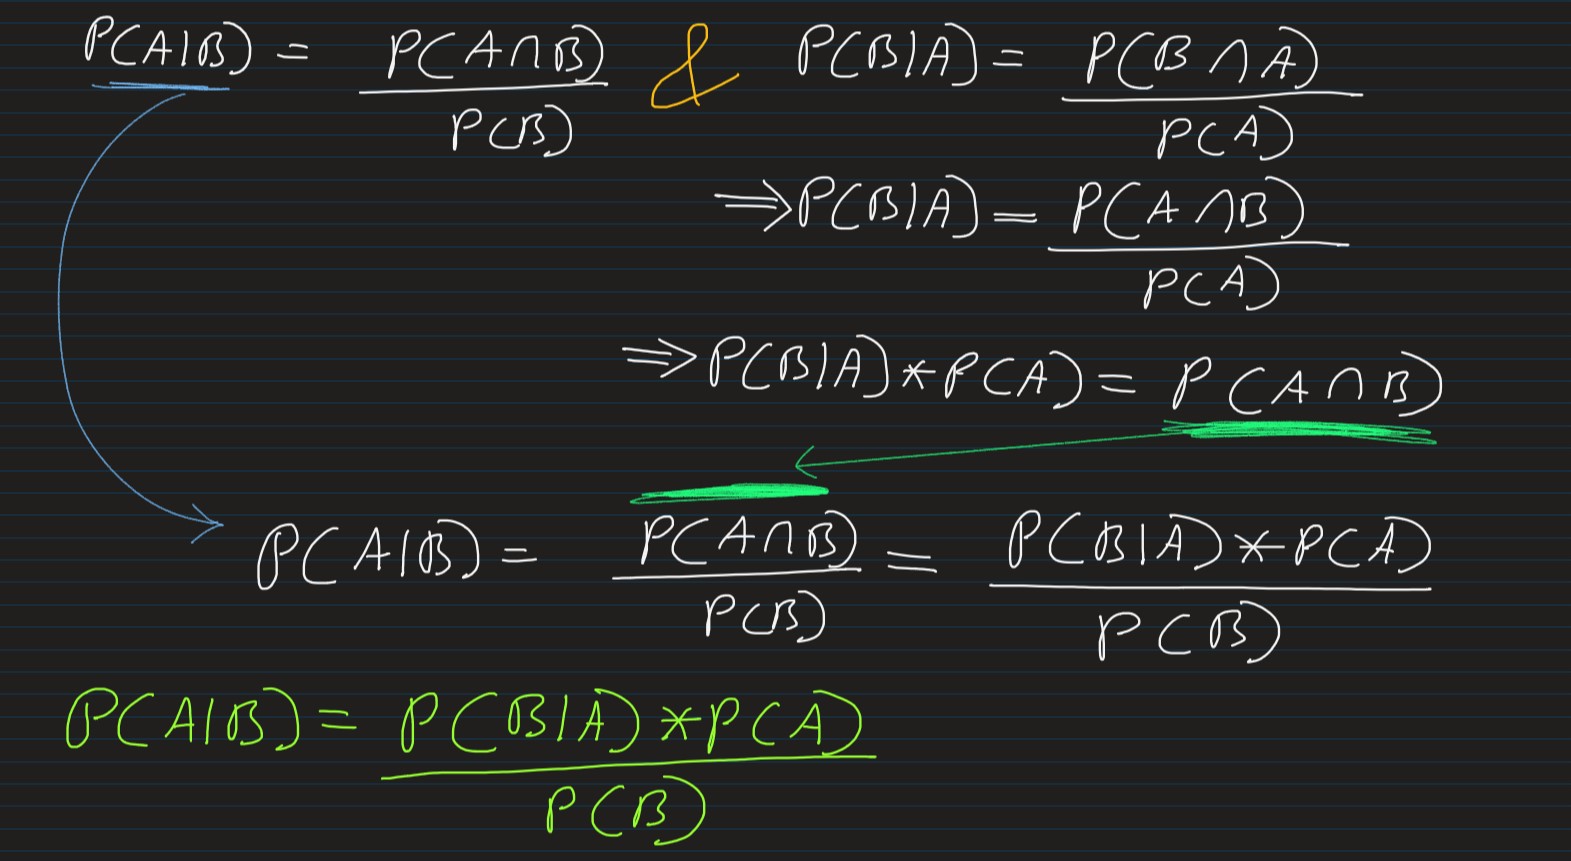 P(A|B) = P(A∩B) / P(B) & P(B|A) = P(B∩A) / P(A)
⇒ P(B|A) = P(A∩B) / P(A)
⇒ P(B|A) * P(A) = P(A∩B)
P(A|B) = P(A∩B) / P(B) = P(B|A) * P(A) / P(B)
P(A|B) = P(B|A) * P(A) / P(B)